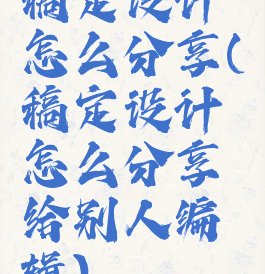 稿定设计
怎么分享(
稿定设计
怎么分享
给别人编
辑)